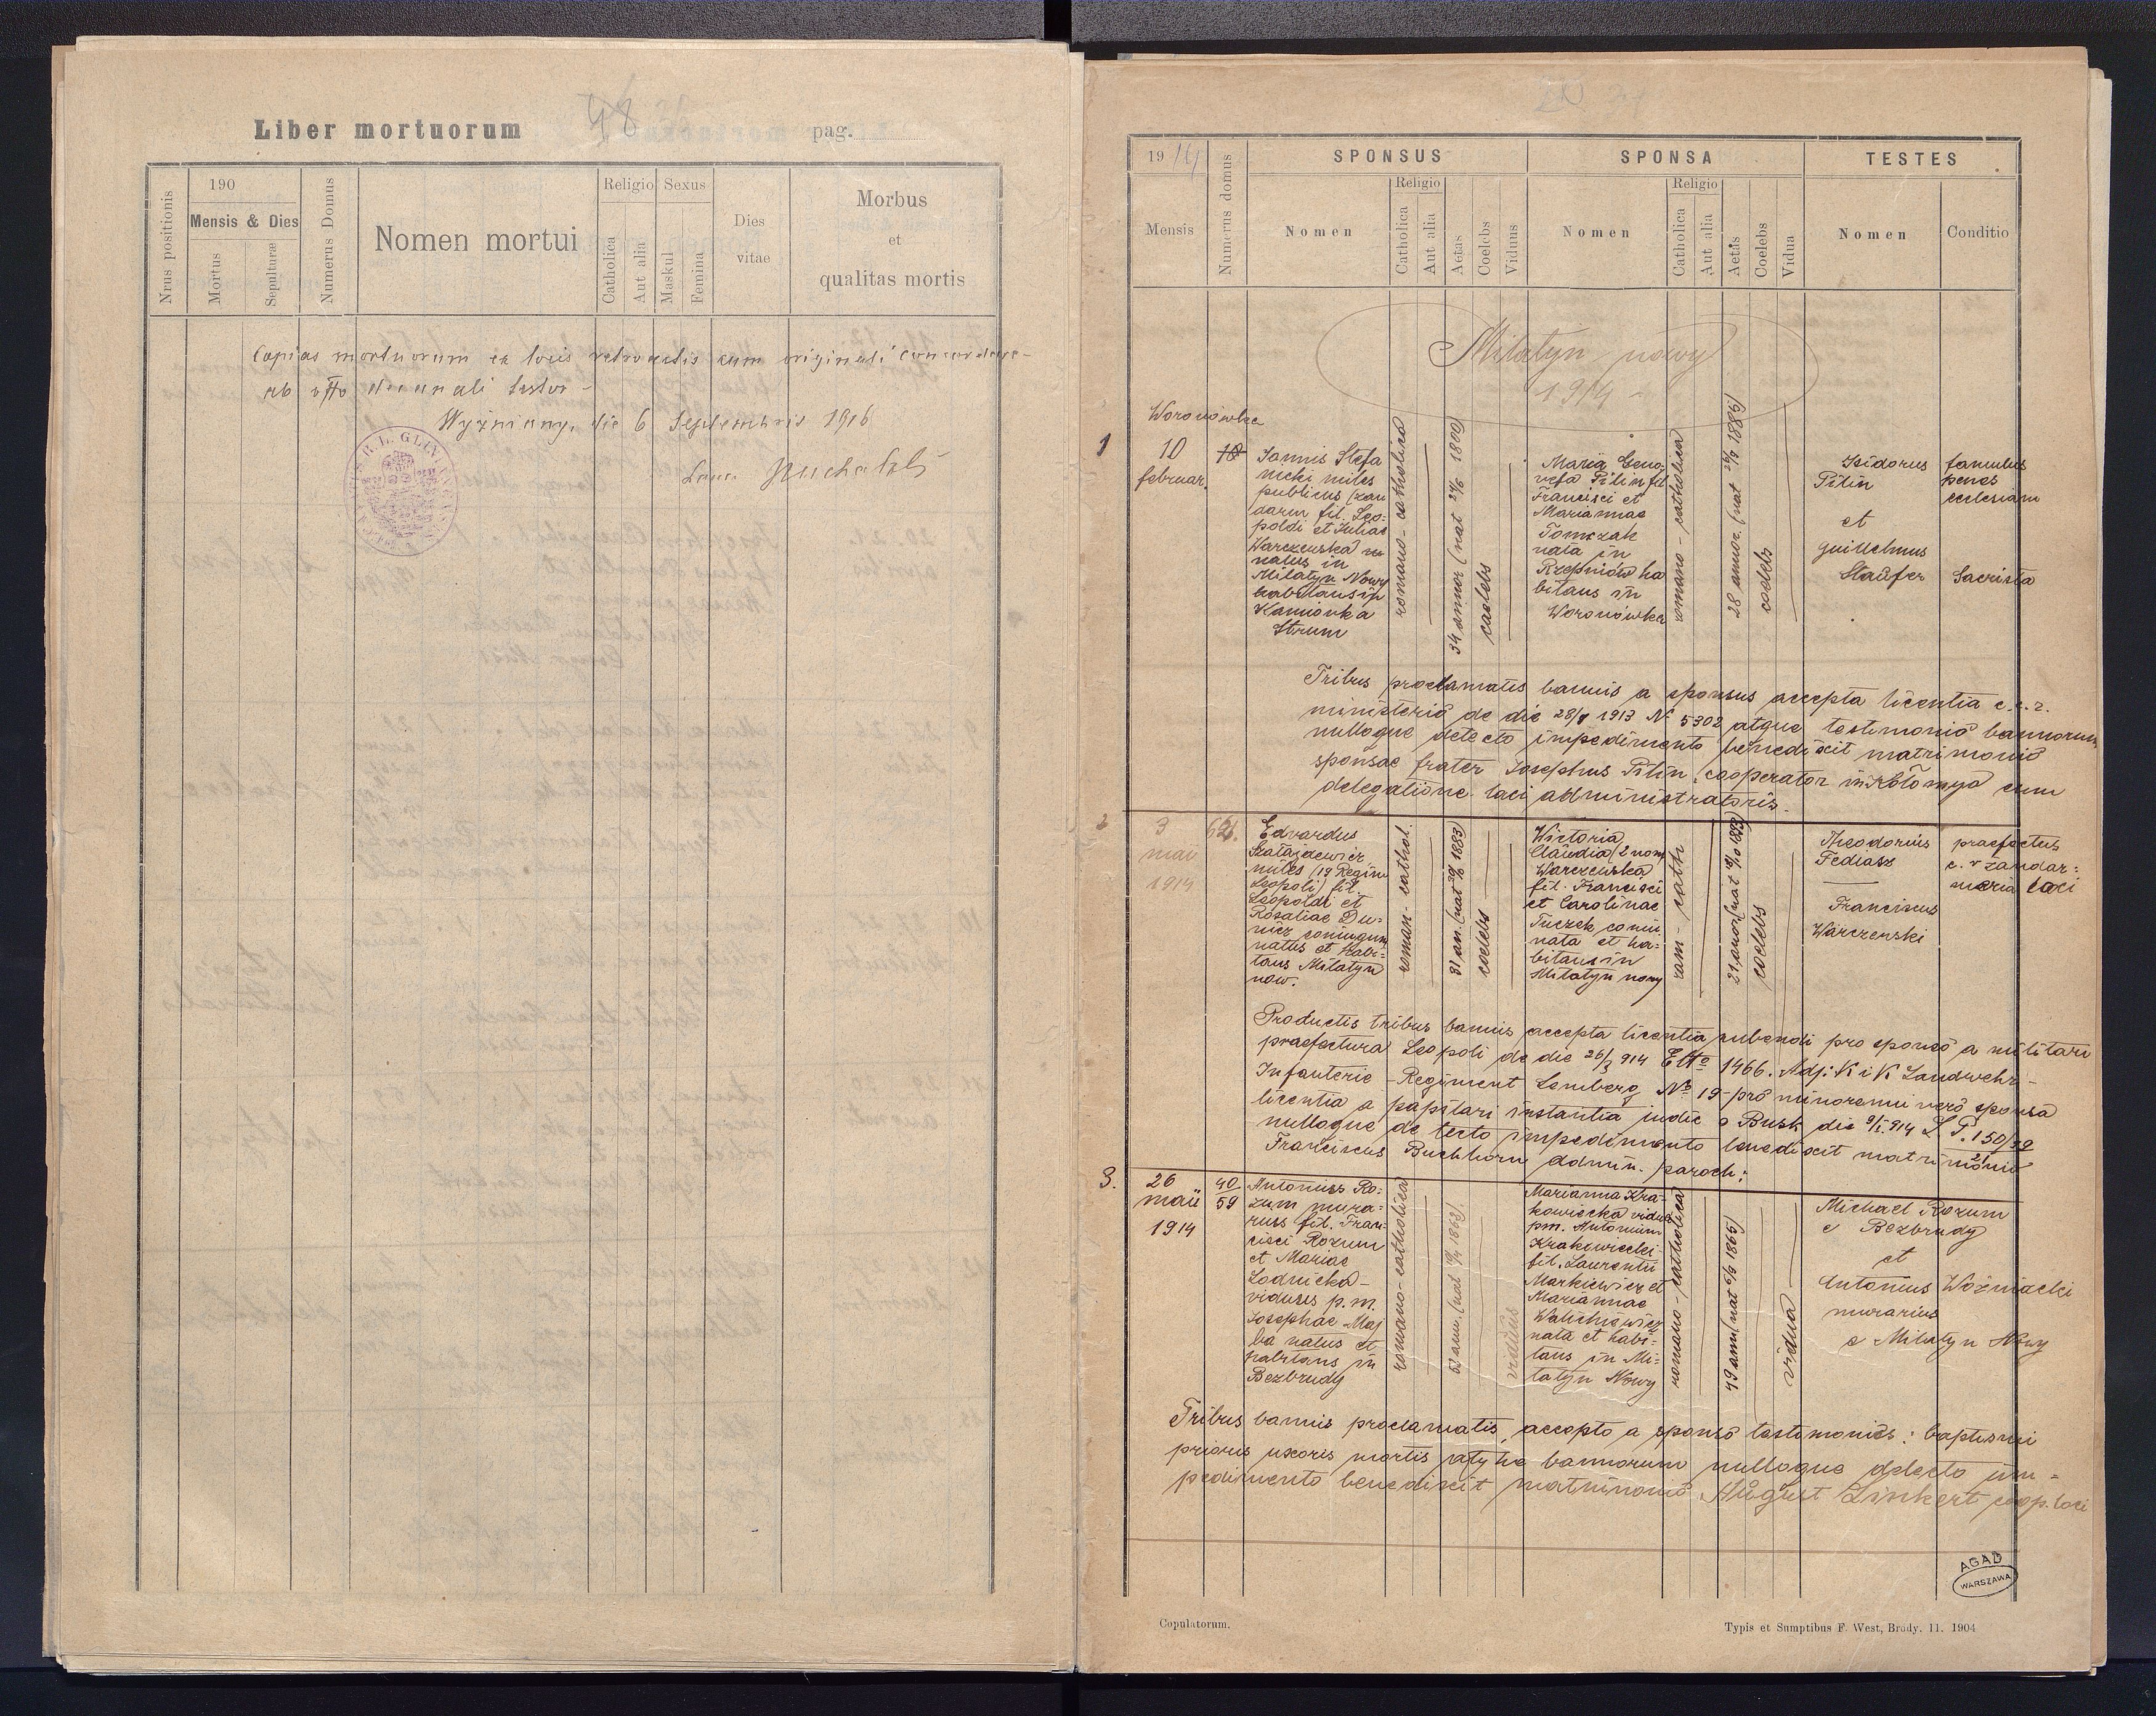 48
Liber mortuorum
pag.
Nrus positionis
190
Mensis & Dies
Mortus
Sepulturæ
Numerus Domus
Nomen mortui
Religio
Catholica
Aut alia
Sexus
Maskul
Femina
Dies
vitae
Morbus
et
qualitas mortis
Copias mortuorum ex locis retroactis cum originali
ab offo decanali testor -
Wyżniany, die 6 Septembris 1916
1914
Mensis
Numerus domus
SPONSUS
Nomen
Religio
Catholica
Aut alia
Aetas
Coelebs
Viduus
SPONSA
Nomen
Religio
Catholica
Aut alia
Aetas
Coelebs
Vidua
TESTES
Nomen
Conditio
Milatyn nowy
1914 -
Woronówka
1
10
februar.
18
Joannis Stefa
nicki miles
publicus (zan
darm fil. Leo-
poldi et Juliae
Warczewska
natus in
Milatyn Nowy
habitans in
Kamionka
Strum
romano-catholica
34 annor (nat
caelebs
Maria Geno-
vefa Pilin fil
Francisci et
Mariannae
Tomczak
nata in
Rzepniów ha
bitans in
Woronówka
romano-catholica
28 annor. (nat
coelebs
Isidorus
Pilin
et
Guillelmus
Staufer
famulus
penes
ecclesiam
Sacrista
Tribus proclamatis bannis a sponsus accepta licentia c. c. r.
ministerio de die 28/8 1913 No 5302 atque testimonio bannorum
nulloque detecto impedimento benedixit matrimonio
sponsae frater Josephus Pilin, cooperator in Kołomyja cum
delegatione loci administratoris.
2
3
maii
1914
Edvardus
Szatajdewicz
miles (19 Regim
Leopoli) fil.
Leopoldi et
Rosaliae Du-
nicz coniugum
natus et habi-
tans Milatyn
now.
roman-cathol.
31 an. (nat 1883)
coelebs
Wictoria
Claudia (2 nom
Warczewska
fil. Francisci
et Carolinae
Tuczek coniu.
nata et ha-
bitans in
Milatyn nowy
rom-cath
21 annor (nat 1893)
coelebs
Theodorius
Fediasz
Franciscus
Warczewski
praefectus
c. r żandar-
meria loci
Productis tribus bannis accepta licentia nubendi pro sponso a militari
praefectura Leopoli de die 26/3 914 Etto 1466. Adj: K i K Landwehr-
Infanterie-Regiment Lemberg No 19- pro minorenni vero sponsa
licentia a pupilari instantia iudic e Busk die 9/I.914 L. P. 150/99
nulloque detecto impedimento benedixit matrimonio
Franciscus Buchhorn admin. paroch:
3.
26
maii
1914
40/59
Antonius Ro-
zum mura-
rius fil. Fran-
cisci Rozum
et Mariae
Zodnicka -
viduus p.m.
Josephae Maj
ba natus et
habitans in
Bezbrudy
romano-catholica
viduus
Marianna Kra-
kowiecka vidua
pm. Antonium
Krakowiecki
fil. Laurentii
Markiewicz et
Mariannae
Walichiewicz
nata et habi-
tans in Mi-
latyn Nowy
romano-catholica
49 ann (nat 1865)
vidua
Michael Rozum
e Bezbrudy
et
Antonius Woźniacki
murarius
e Milatyn Nowy
Tribus bannis proclamatis, accepto a sponso testimoniis: baptismi
prioris uxoris mortis atque bannorum nulloque detecto im-
pedimento benedixit matrimonio August Linkert coop. loci
AGAD
WARSZAWA
Copulatorum.
Typis et Sumptibus F. West, Brody. 11. 1904